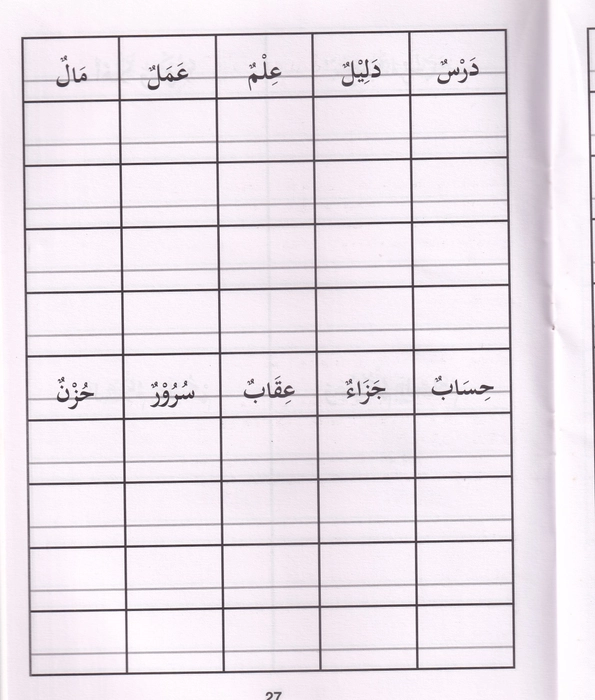 دَرْسٌ دَلِيْلٌ عِلْمٌ عَمَلٌ مَالٌ
حِسَابٌ جَزَاءٌ عِقَابٌ سُرُوْرٌ حُزْنٌ
27